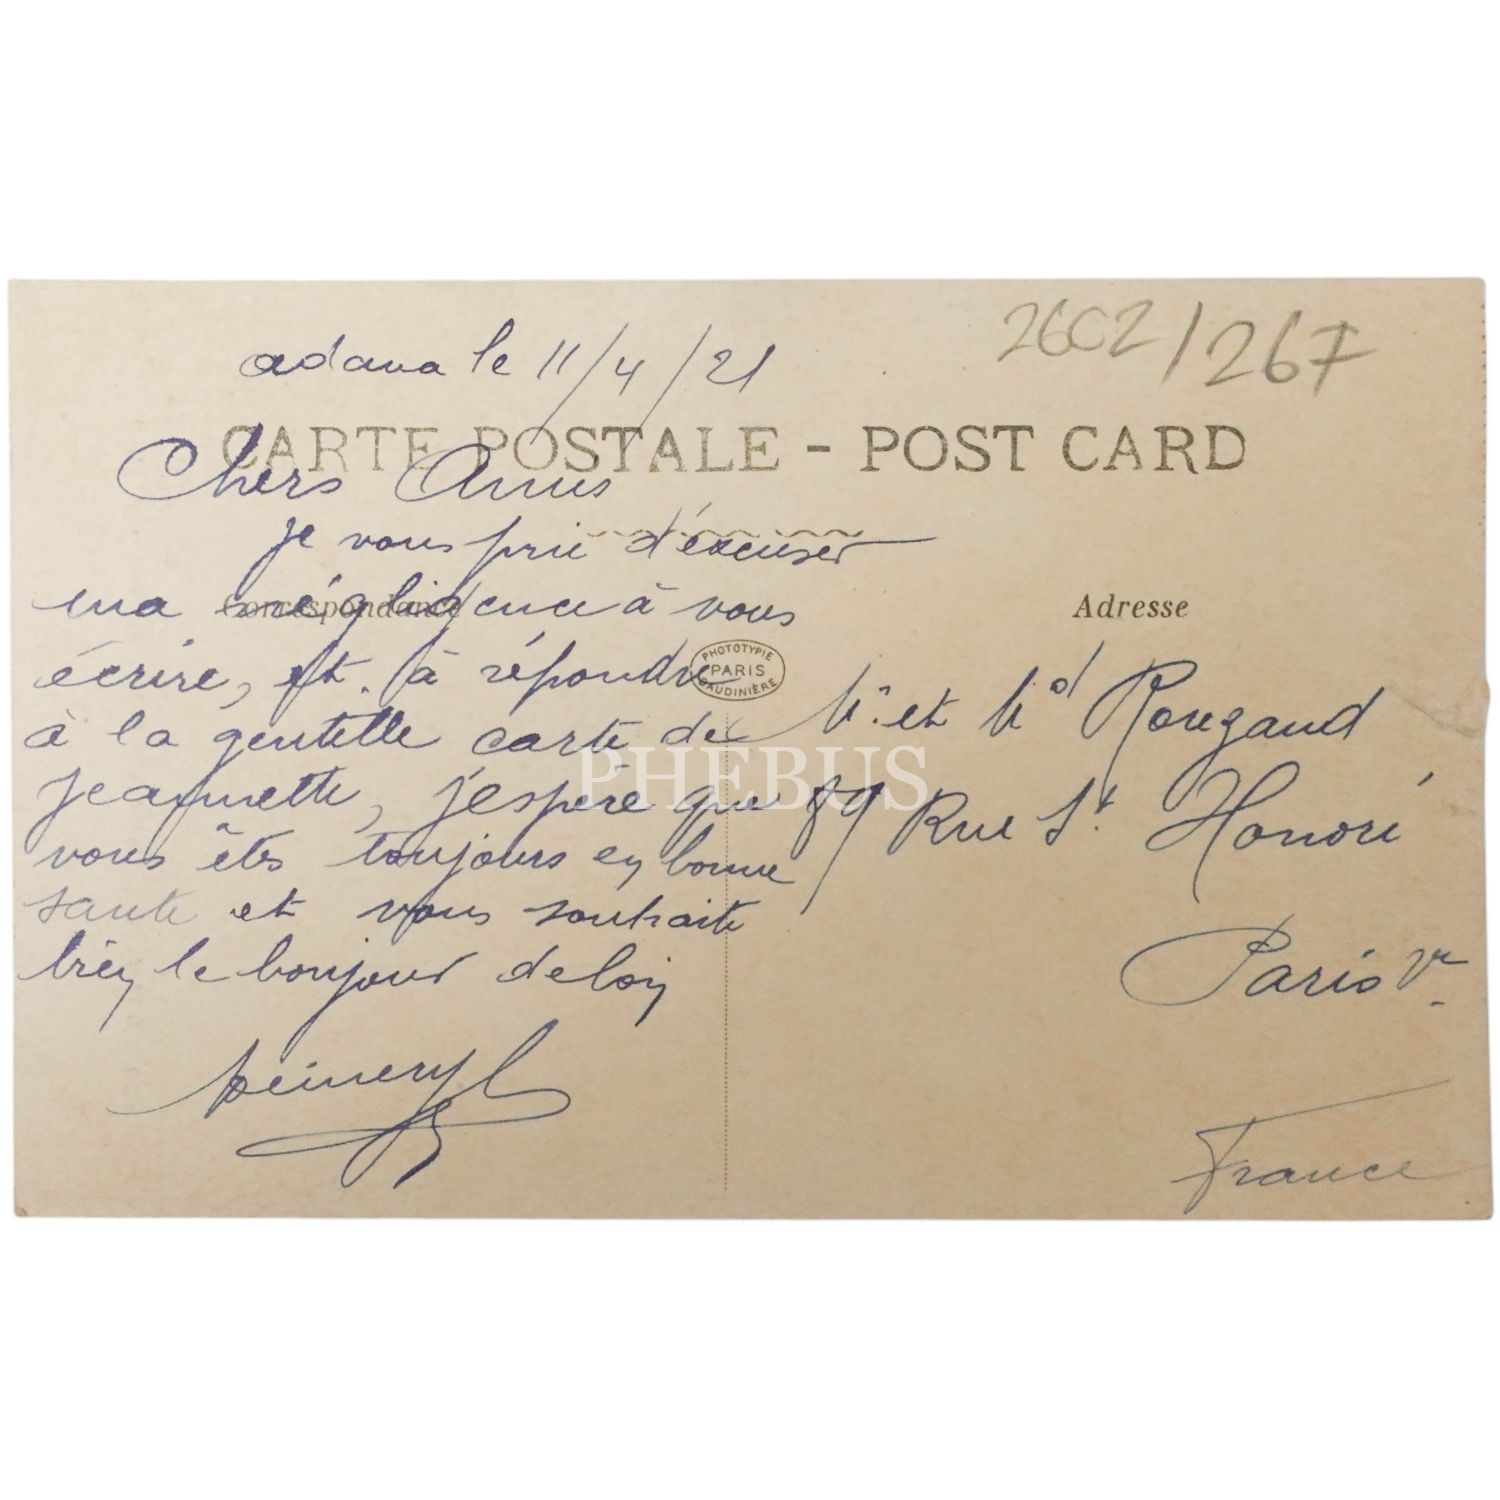 2602/267
adana le 11/4/21
CARTE POSTALE - POST CARD
Chers Amis
je vous prie d'éxcuser
Correspondance
ma négligence à vous
écrire, et. à répondre
à la gentille carte de
jeannette, j'espère que
vous êtes toujours en bonne
sante et vous souhaite
bien le bonjour de loin
PHOTOTYPIE
PARIS
BAUDINIÈRE
Adresse
Mr. et Md Rougaud
89 Rue St. Honoré
Paris
France
PHEBUS